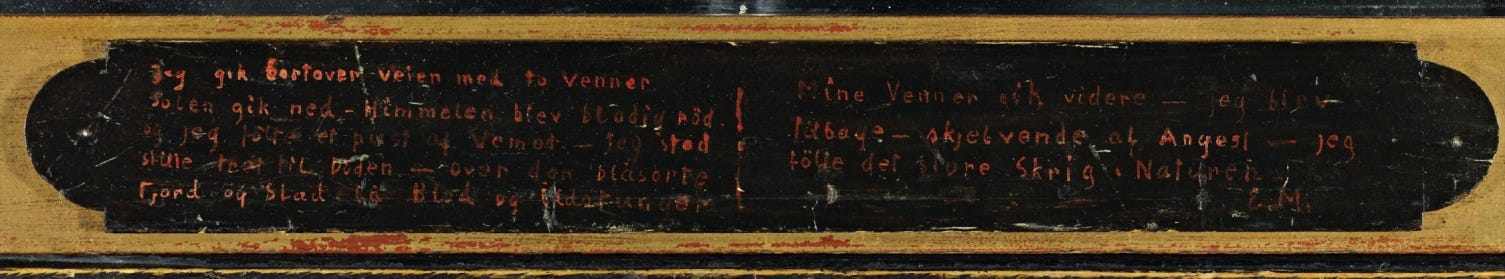 Jeg gik bortover veien med to Venner
Solen gik ned – Himmelen blev blodig röd
og jeg fölte et pust af Vemod. – Jeg stod
stille træt til Döden – over den blåsorte
Fjord og Stad lå Blod og Ildstunger
Mine Venner gik videre – jeg blev
tilbage – skjelvende af Angest – jeg
fölte det store Skrig i Naturen
E.M.